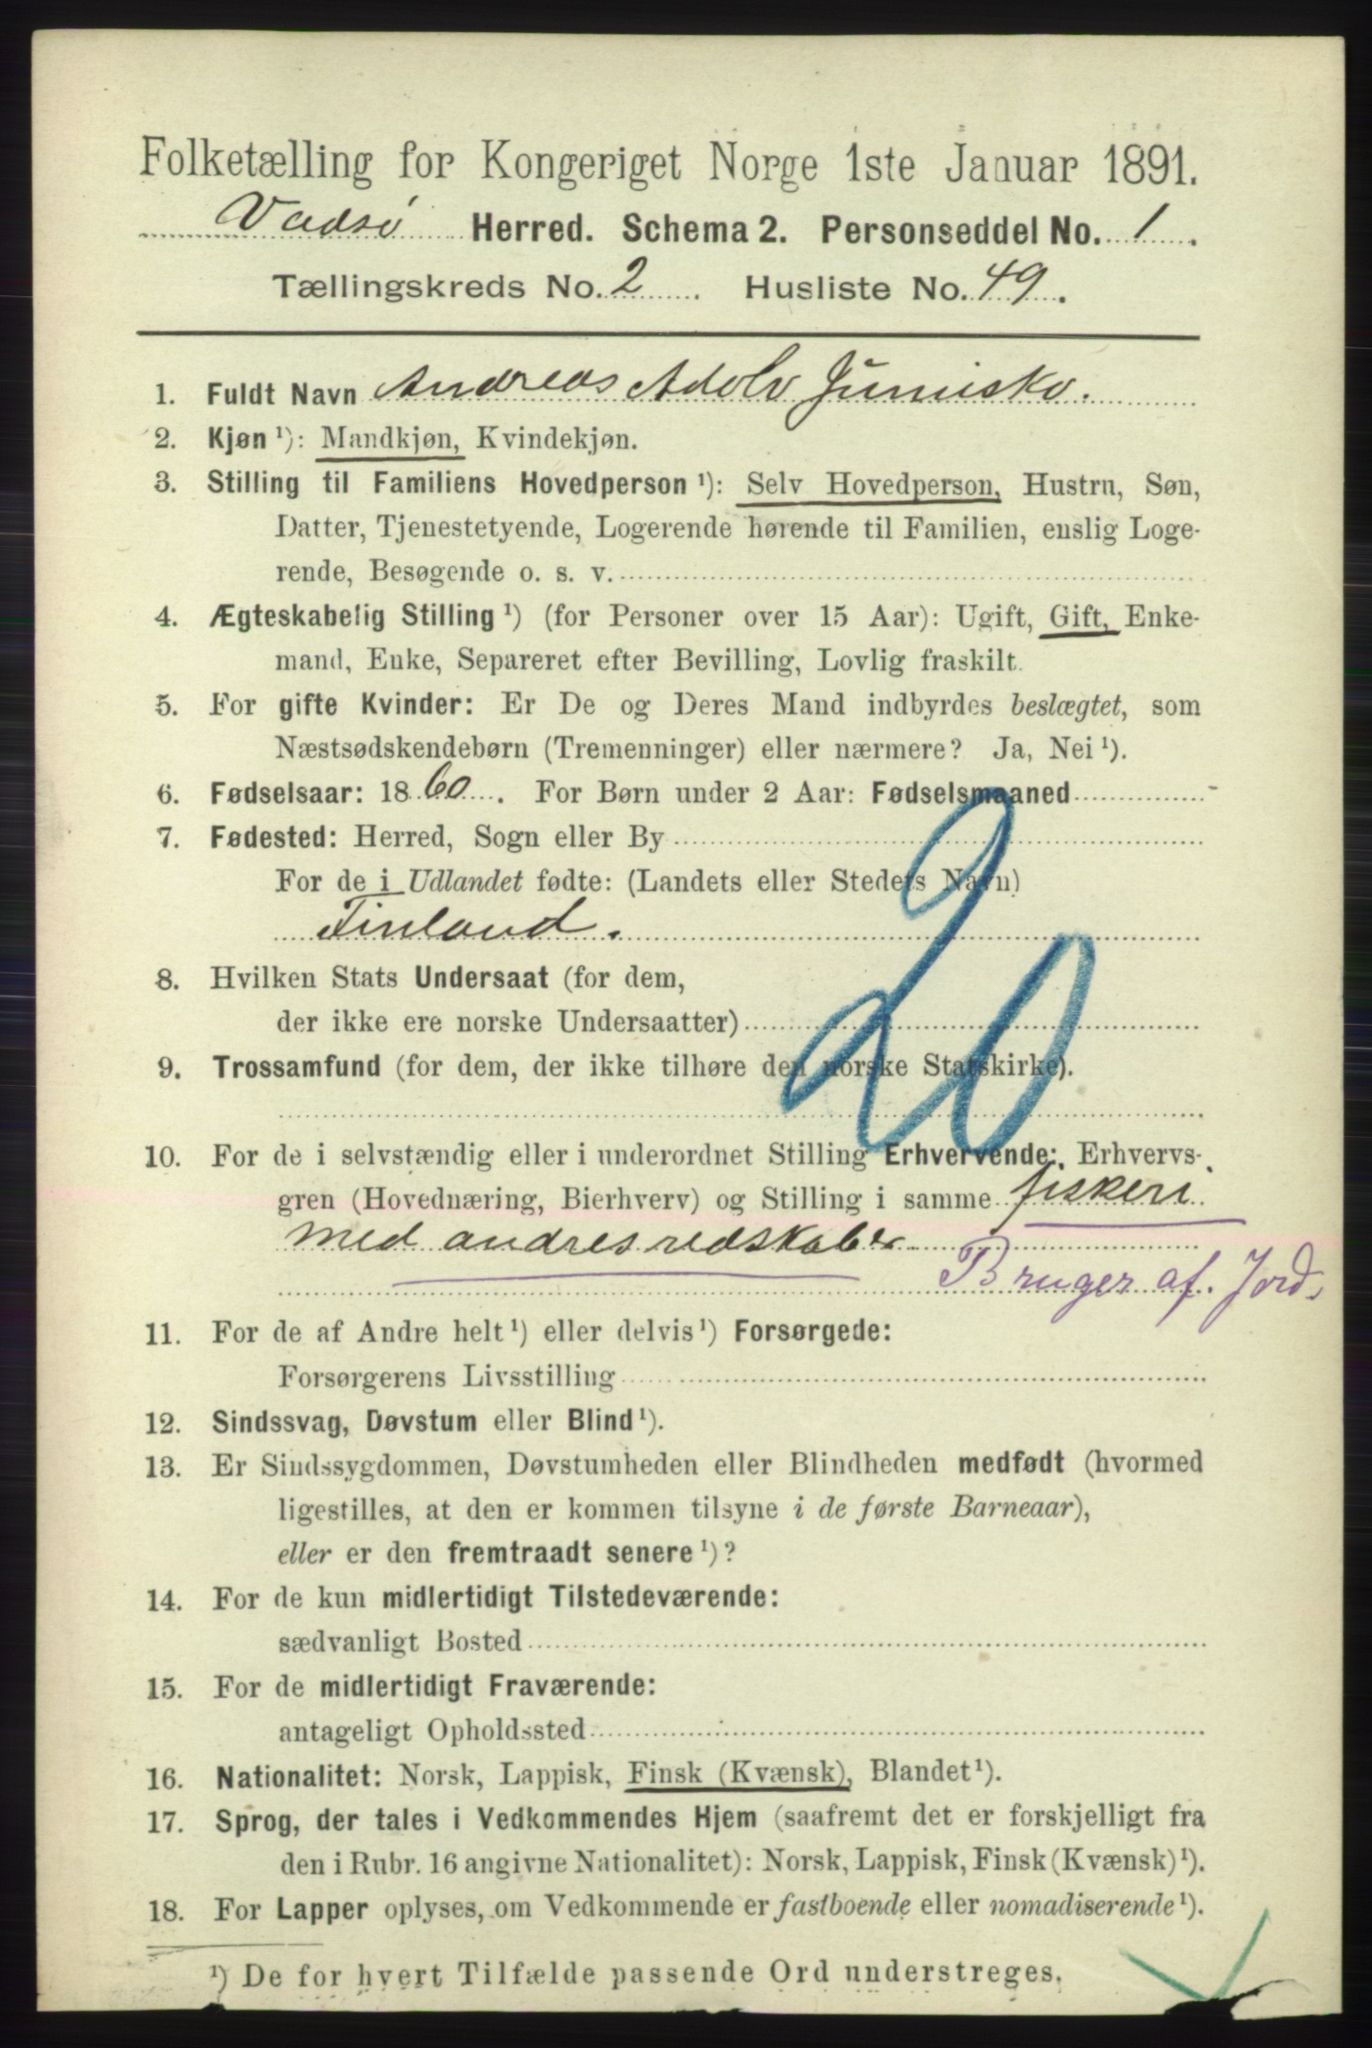 Folketælling for Kongeriget Norge 1ste Januar 1891.
Vadsø Herred. Schema 2. Personseddel No. 1.
Tællingskreds No. 2. Husliste No. 49.
1. Fuldt Navn Andreas Adolv Jumisko.
2. Kjøn ¹): Mandkjøn, Kvindekjøn.
3. Stilling til Familiens Hovedperson ¹): Selv Hovedperson, Hustru, Søn,
Datter, Tjenestetyende, Logerende hørende til Familien, enslig Loge-
rende, Besøgende o. s. v.
4. Ægteskabelig Stilling ¹) (for Personer over 15 Aar): Ugift, Gift, Enke-
mand, Enke, Separeret efter Bevilling, Lovlig fraskilt.
5. For gifte Kvinder: Er De og Deres Mand indbyrdes beslægtet, som
Næstsødskendebørn (Tremenninger) eller nærmere? Ja, Nei ¹).
6. Fødselsaar: 1860. For Børn under 2 Aar: Fødselsmaaned
7. Fødested: Herred, Sogn eller By
For de i Udlandet fødte: (Landets eller Stedets Navn)
Finland.
20
8. Hvilken Stats Undersaat (for dem,
der ikke ere norske Undersaatter)
9. Trossamfund (for dem, der ikke tilhøre den norske Statskirke).
10. For de i selvstændig eller i underordnet Stilling Erhvervende: Erhvervs-
gren (Hovednæring, Bierhverv) og Stilling i samme fiskeri
med andres redskaber
Bruger af Jord.
11. For de af Andre helt ¹) eller delvis ¹) Forsørgede:
Forsørgerens Livsstilling
12. Sindssvag, Døvstum eller Blind ¹).
13. Er Sindssygdommen, Døvstumheden eller Blindheden medfødt (hvormed
ligestilles, at den er kommen tilsyne i de første Barneaar),
eller er den fremtraadt senere ¹)?
14. For de kun midlertidigt Tilstedeværende:
sædvanligt Bosted
15. For de midlertidigt Fraværende:
antageligt Opholdssted
16. Nationalitet: Norsk, Lappisk, Finsk (Kvænsk), Blandet ¹).
17. Sprog, der tales i Vedkommendes Hjem (saafremt det er forskjelligt fra
den i Rubr. 16 angivne Nationalitet): Norsk, Lappisk, Finsk (Kvænsk) ¹).
18. For Lapper oplyses, om Vedkommende er fastboende eller nomadiserende ¹).
¹) De for hvert Tilfælde passende Ord understreges.